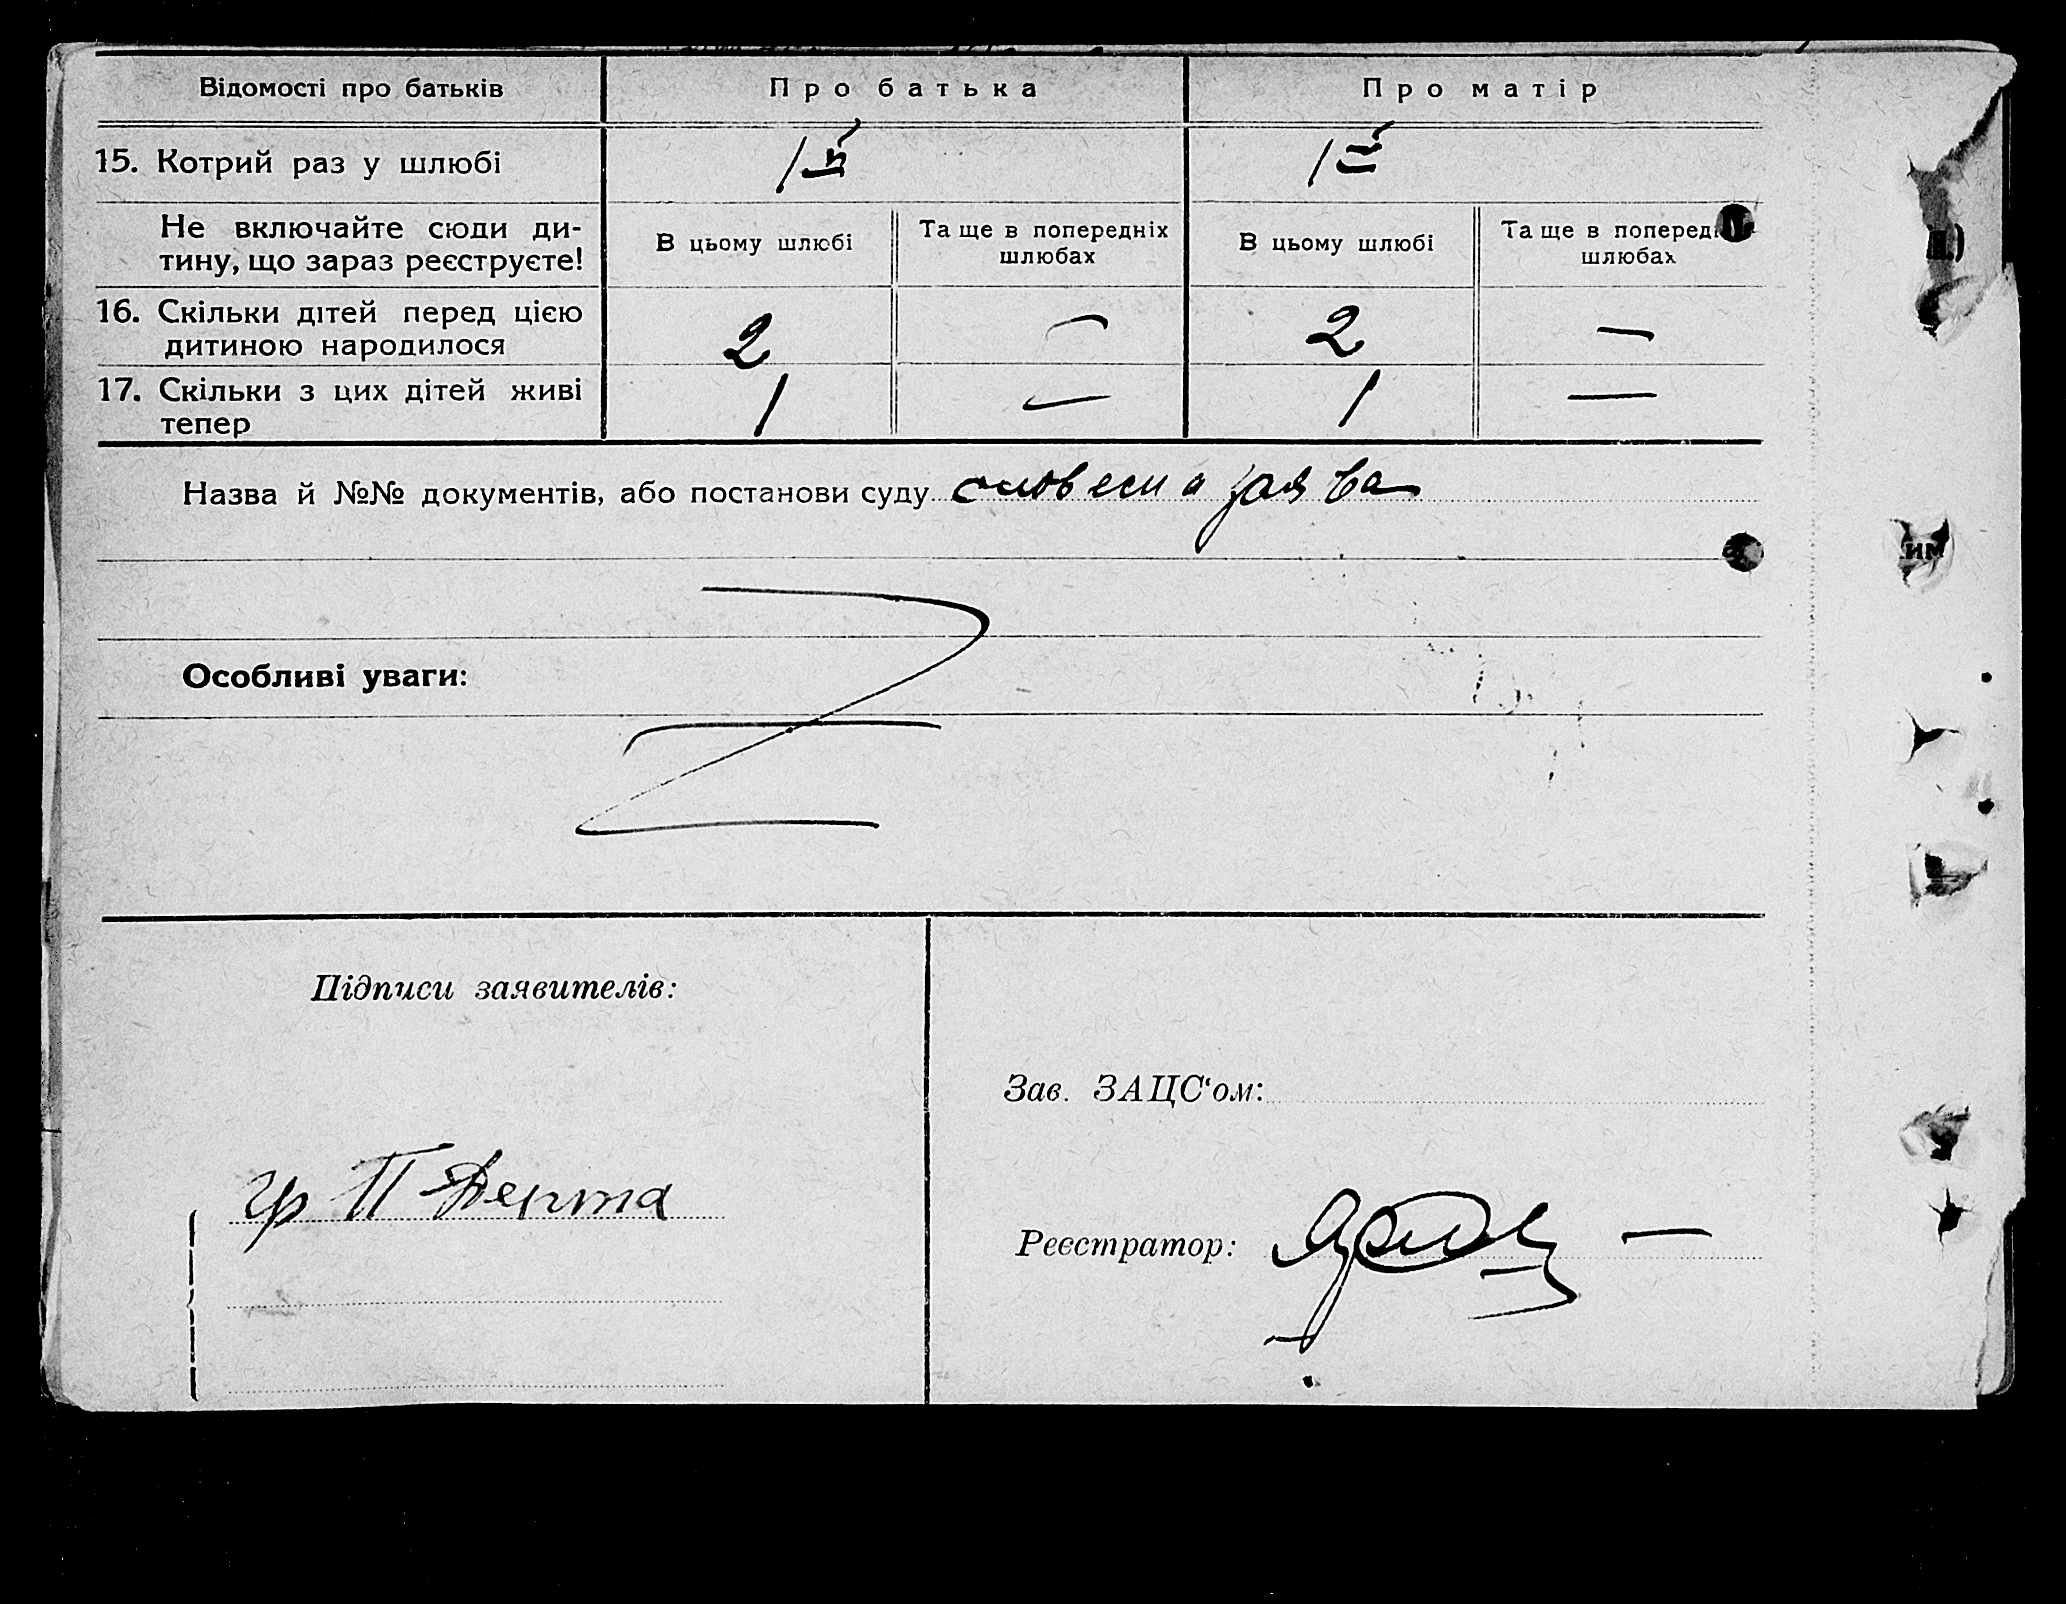 Відомості про батьків Про батька Про матір
15. Котрий раз у шлюбі 1й 1й
Не включайте сюди ди-
тину, що зараз реєструєте!
В цьому шлюбі Та ще в попередніх шлюбах В цьому шлюбі Та ще в поперед шлюбах
16. Скільки дітей перед цією
дитиною народилося 2 — 2 —
17. Скільки з цих дітей живі
тепер 1 — 1 —
Назва й №№ документів, або постанови суду словесна заява
Особливі уваги:
Підписи заявителів:
Зав. ЗАЦС‘ом:
гр П
Реєстратор:
им